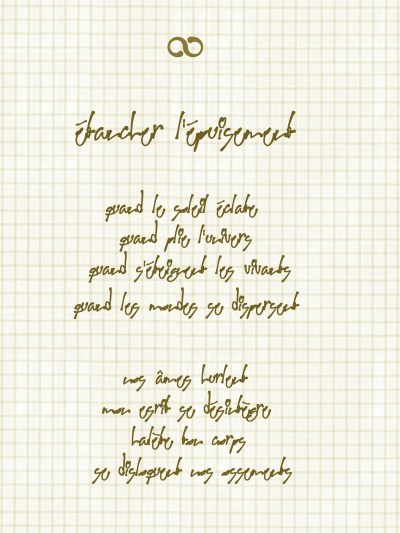 ∞
étancher l'épuisement
quand le soleil éclate
quand plie l'univers
quand s'éteignent les vivants
quand les mondes se dispersent
nos âmes hurlent
mon esprit se désintègre
halète ton corps
se disloquent nos ossements